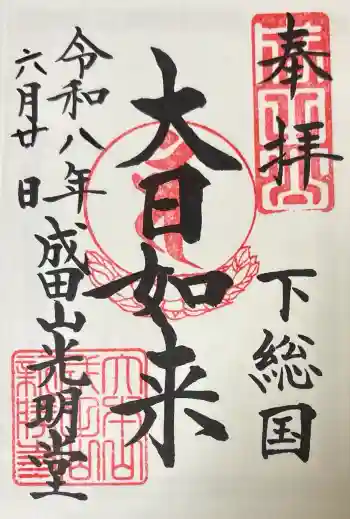 奉拝
下総国
大日如来
成田山光明堂
令和八年
六月廿日